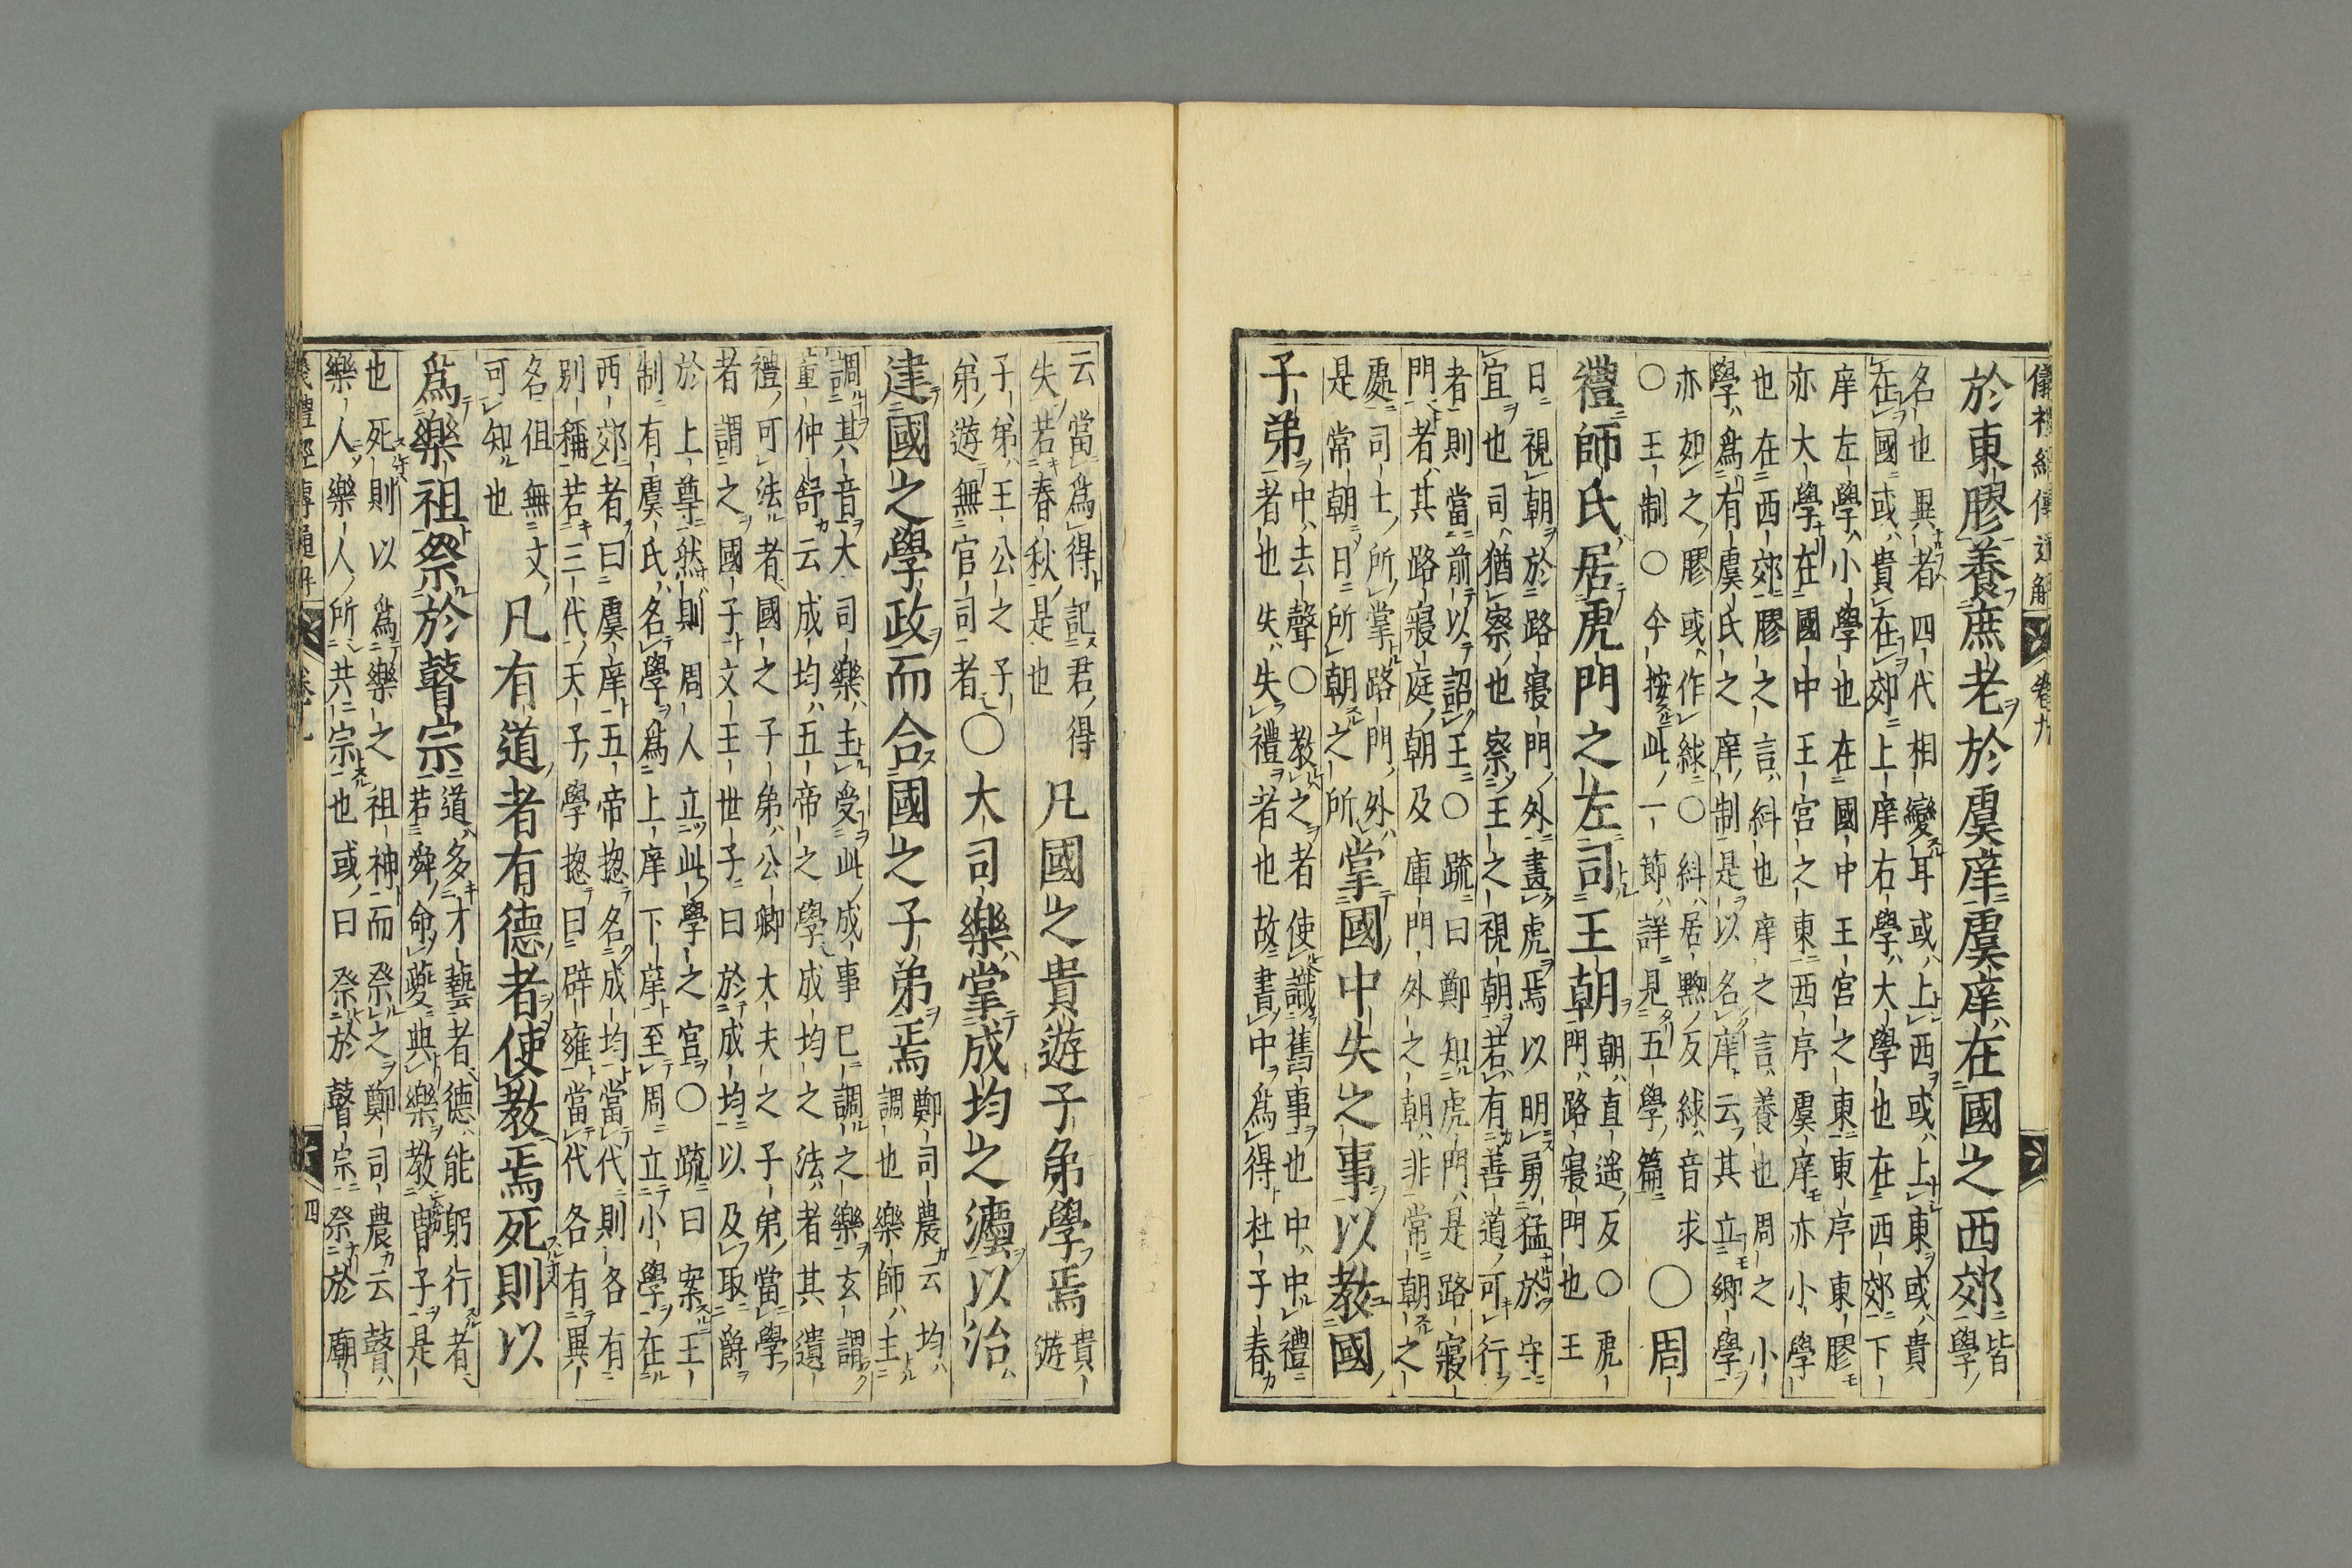 儀禮經傳通解 卷九
於東膠養庶老於虞庠虞庠在國之西郊皆學
名也異者四代相變耳或上西或上東或貴
在國或貴在郊上庠右學大學也在西郊下
庠左學小學也在國中王宮之東東序東膠
亦大學在國中王宮之東西序虞庠亦小學
也在西郊膠之言糾也庠之言養也周之小
學爲有虞氏之庠制是以名庠云其立鄉學
亦如之膠或作絿○糾居黝反絿音求
○王制○今按此一節詳見五學篇 ○周
禮師氏居虎門之左司王朝
朝直遥反○虎
門路寢門也王
日視朝於路寢門外畫虎焉以明勇猛於守
宜也司猶察也察王之視朝若有善道可行
者則當前以詔王○疏曰鄭知虎門是路寢
門者其路寢庭朝及庫門外之朝非常朝之
處司士所掌路門外
是常朝日所朝之所
掌國中失之事以教國
子弟
中去聲○教之者使識舊事也中中禮
者也失失禮者也故書中爲得杜子春
云當爲得記君得
失若春秋是也
凡國之貴遊子弟學焉
貴遊
子弟王公之子
弟遊無官司者
○大司樂掌成均之灋以治
建國之學政而合國之子弟焉
鄭司農云均
調也樂師主
調其音大司樂主受此成事已調之樂玄謂
董仲舒云成均五帝之學成均之法者其遺
禮可法者國之子弟公卿大夫之子弟當學
者謂之國子文王世子曰於成均以及取爵
於上尊然則周人立此學之宮○疏曰案王
制有虞氏名學爲上庠下庠至周立小學在
西郊者曰虞庠五帝揔名成均當代則各有
別稱若三代天子學揔曰辟雍當代各有異
名但無文
可知也
凡有道者有德者使教焉死則以
爲樂祖祭於瞽宗
道多才藝者德能躬行者
若舜命夔典樂教冑子是
也死則以爲樂之祖神而祭之鄭司農云瞽
樂人樂人所共宗也或曰祭於瞽宗祭於廟
儀禮經傳通解 卷九 四